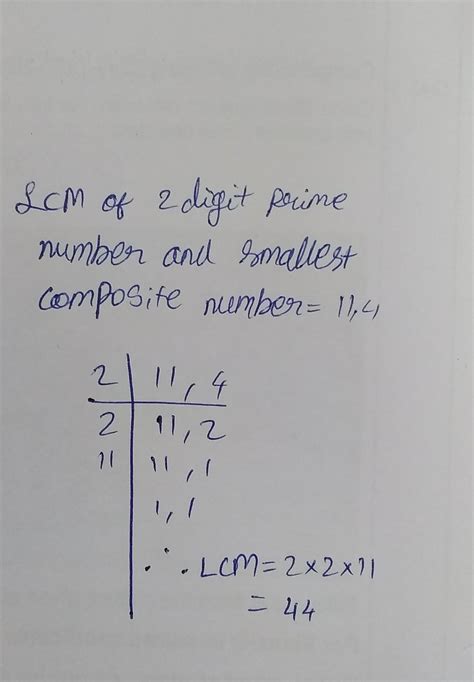 LCM of 2 digit prime
number and smallest
composite number = 11,4
2 | 11, 4
2 | 11, 2
11 | 11, 1
1, 1
∴ LCM = 2×2×11
= 44